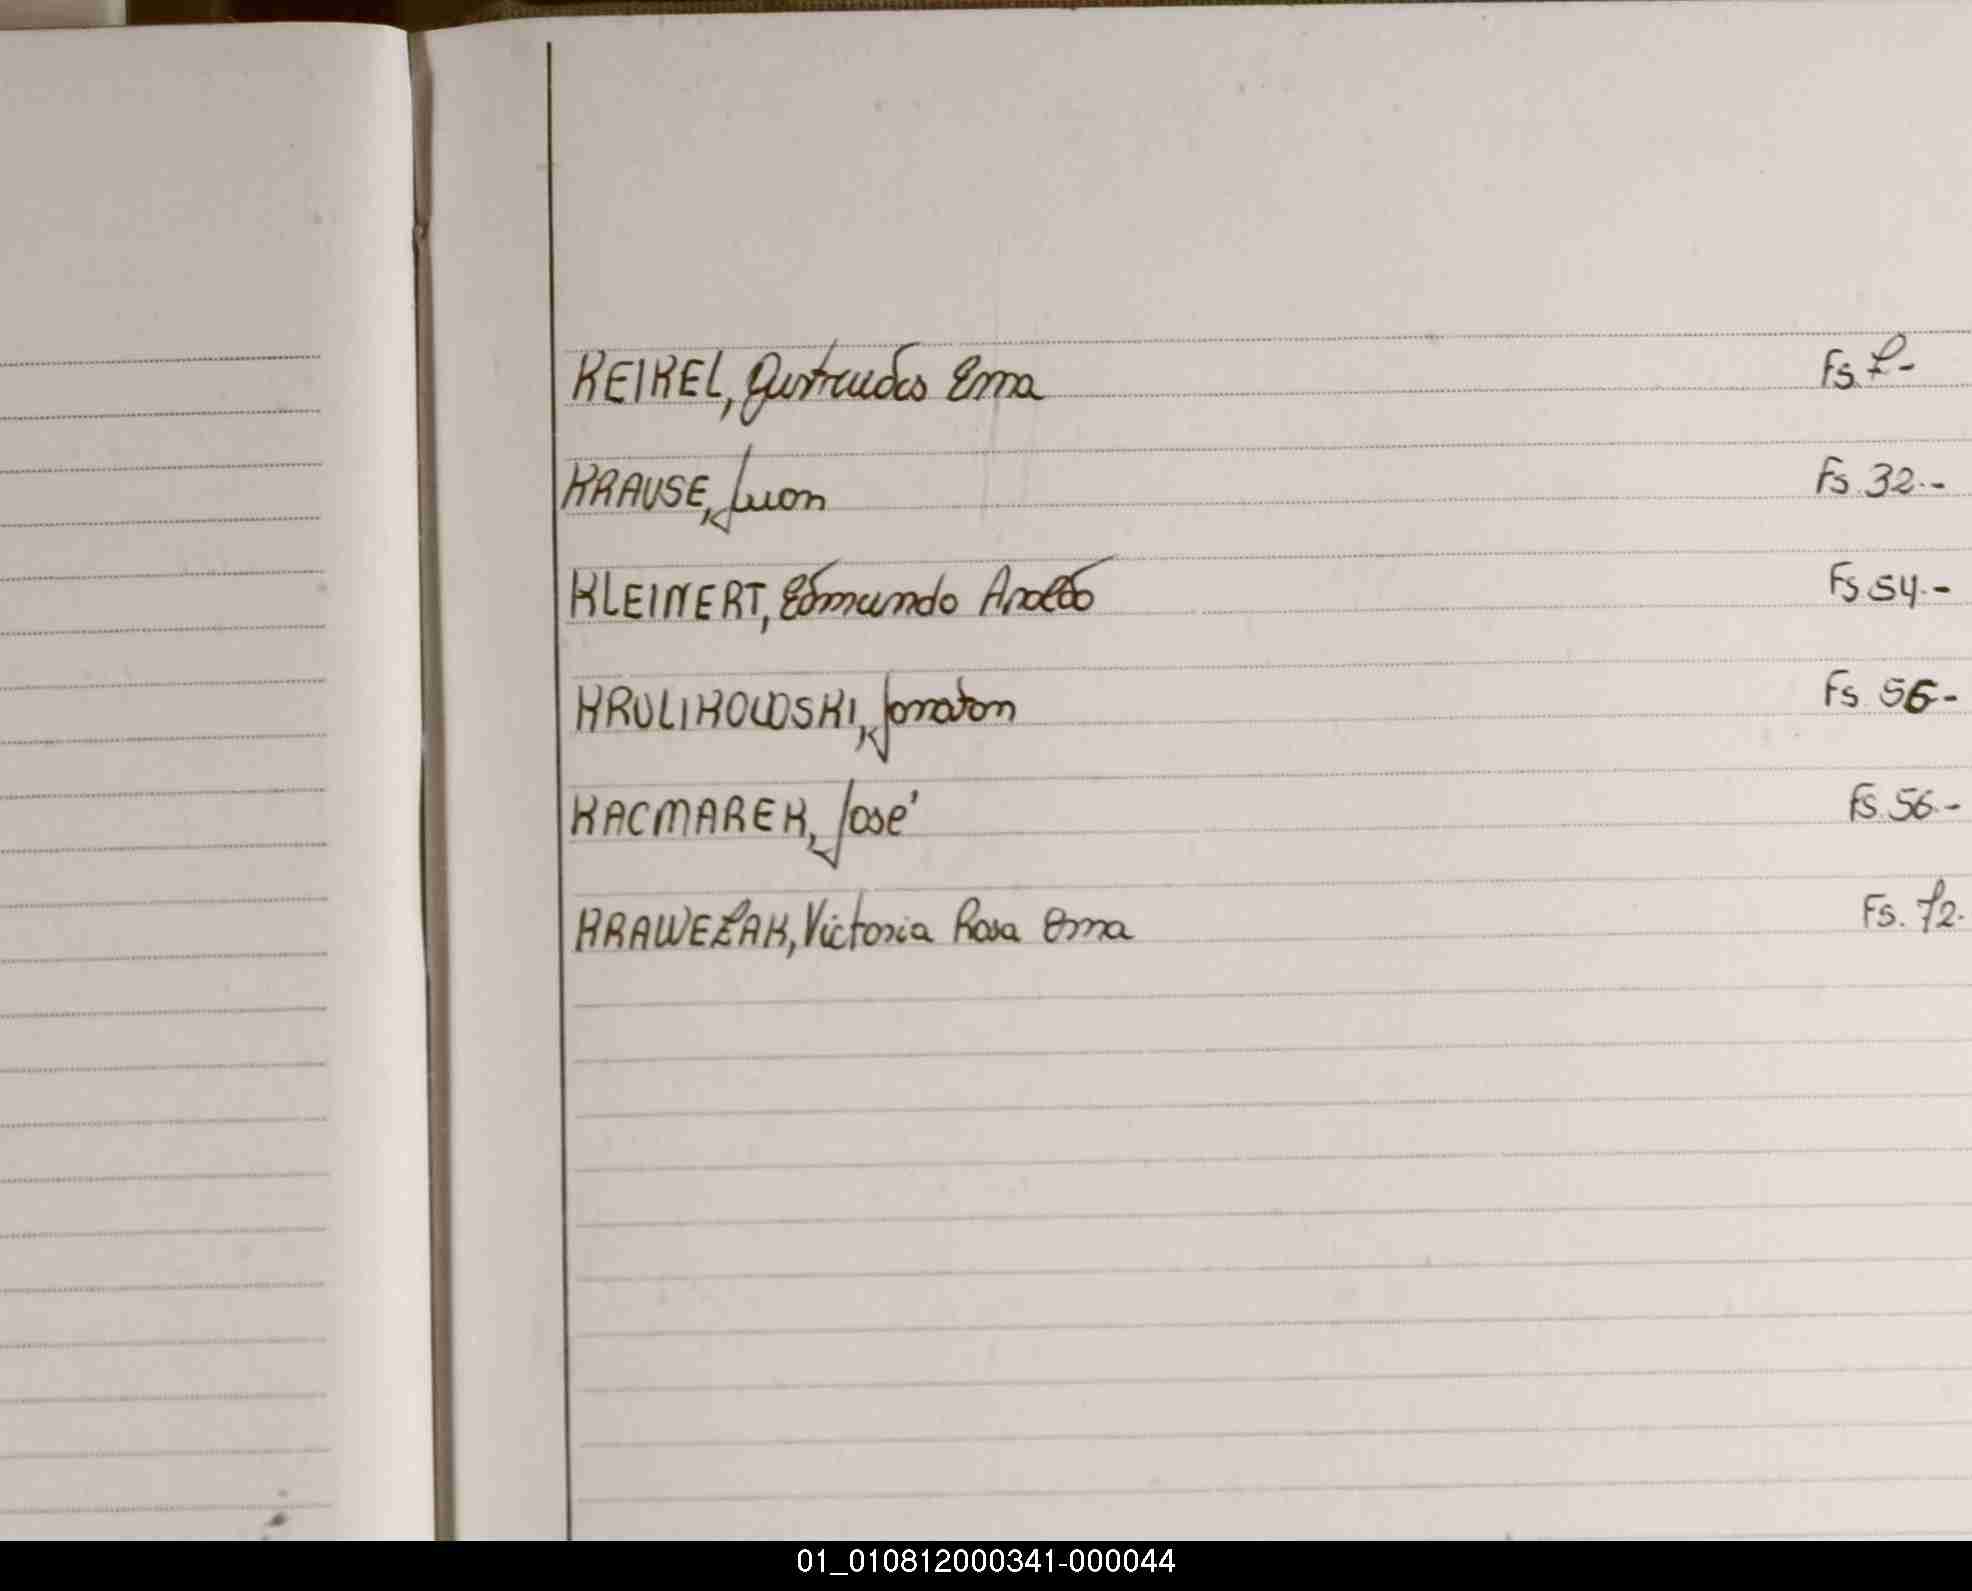 KEIKEL, Gertrudis Ema Fs. 7-
KRAUSE, Juan Fs. 32.-
KLEINERT, Edmundo Aroldo Fs. 54.-
KRULIKOWSKI, Jonatan Fs. 56-
KACMAREK, José Fs. 56.-
KRAWEZAK, Victoria Rosa Ema Fs. 72.
01_010812000341-000044